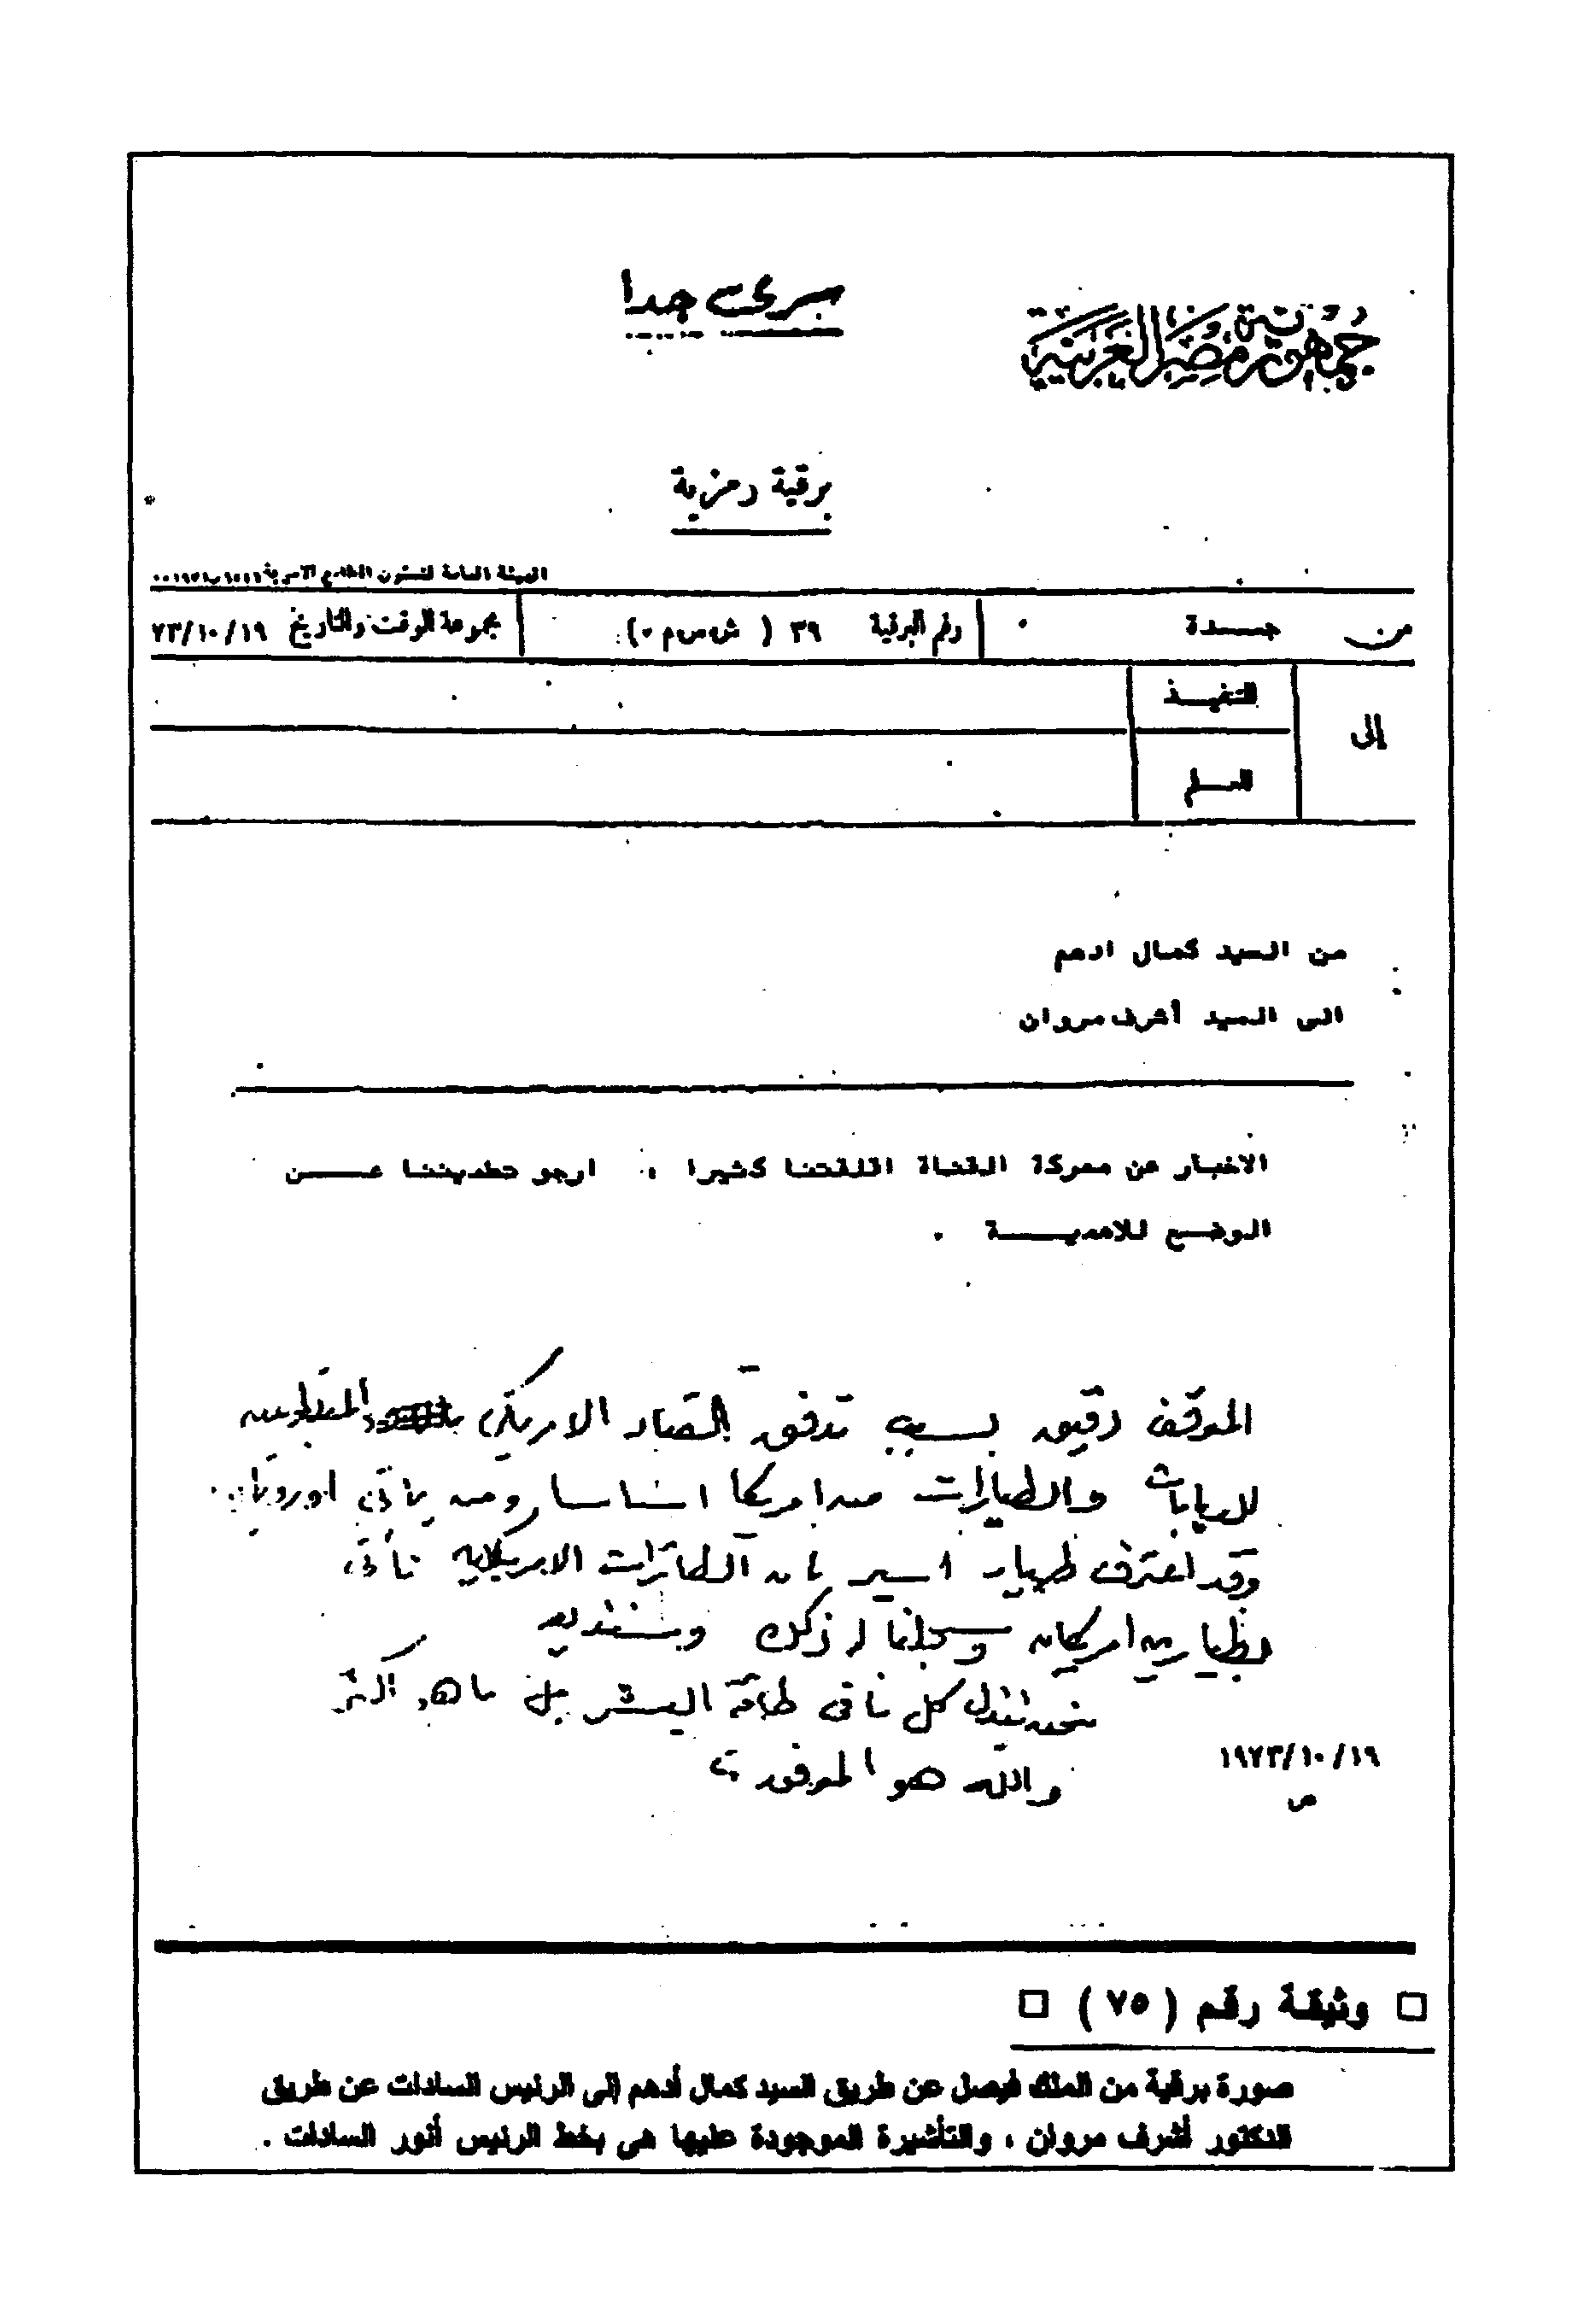 سرى جدا
جمهورية مصر العربية
برقية رمزية
الهيئة العامة لشئون المطابع الاميرية
من جــدة . رقم البرقية ٣٩ ( ش٠س٠م٠) مجموعة الوقت والتاريخ ٧٣/١٠/١٩
إلى
للتنفيــذ
للعــلم
من السيد كمال ادهم
الى السيد أشرف مروان
الاخبار عن معركة القناة اقلقتنا كثيرا . ارجو تطمينننا عــــن
الوضـع للاهميــــة .
الموقف دقيق بسبب تدفق العتاد الامريكى
للدبابات والطيارات من امريكا اساسا ومن باقى اوروبا .
وقد اعترف طيار اسير بان الطائرات الامريكية تأتى
بطيارين امريكان وسجلنا له ذلك
نحن نبذل كل ما فى طاقة البشر بل ما هو أكثر
والله هو الموفق ،،
١٩٧٣/١٠/١٩
ص
□ وثيقة رقم ( ٧٥ ) □
صورة برقية من الملك فيصل عن طريق السيد كمال أدهم إلى الرئيس السادات عن طريق
الدكتور أشرف مروان ، والتأشيرة الموجودة عليها هى بخط الرئيس أنور السادات .